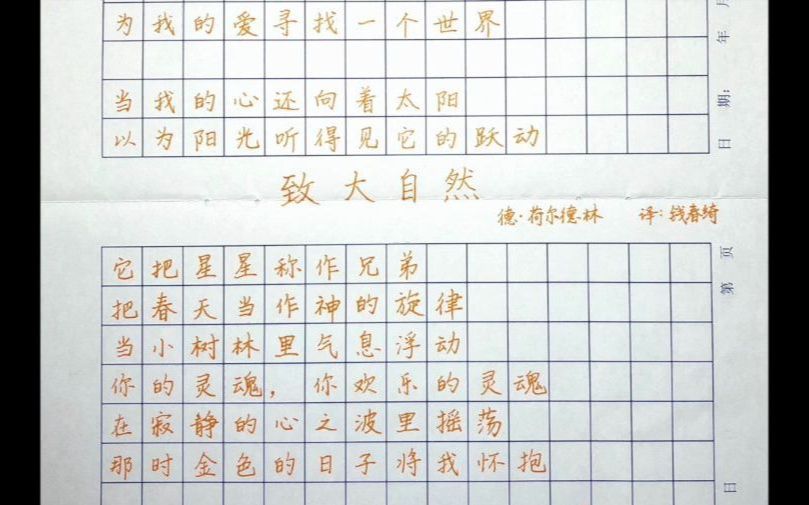 为我的爱寻找一个世界
当我的心还向着太阳
以为阳光听得见它的跃动
致大自然
德·荷尔德林 译:钱春绮
它把星星称作兄弟
把春天当作神的旋律
当小树林里气息浮动
你的灵魂,你欢乐的灵魂
在寂静的心之波里摇荡
那时金色的日子将我怀抱
年 月
日期:
第 页
日